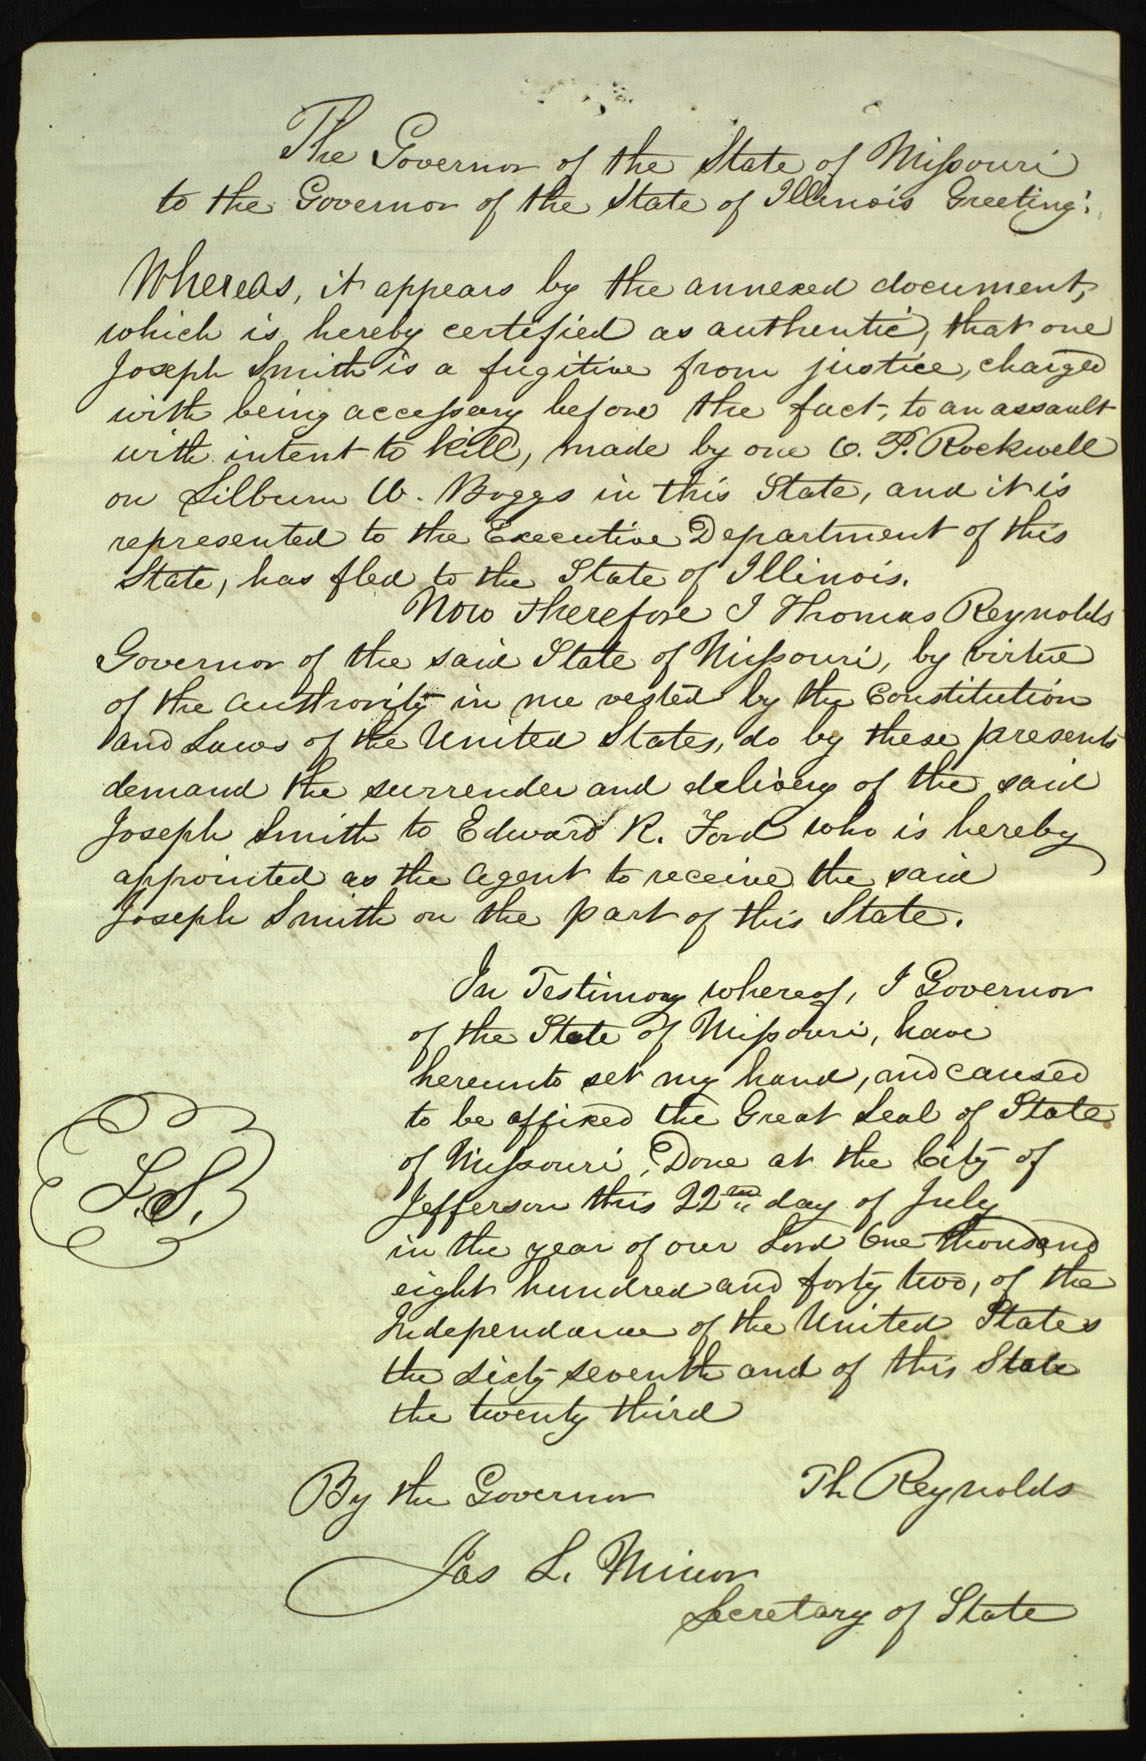 The Governor of the State of Missouri
to the Governor of the State of Illinois Greeting:
Whereas, it appears by the annexed document,
which is hereby certified as authentic, that one
Joseph Smith is a fugitive from justice, charged
with being accessary before the fact, to an assault
with intent to kill, made by one O. P. Rockwell
on Lilburn W. Boggs in this State, and it is
represented to the Executive Department of this
State, has fled to the State of Illinois.
Now therefore I Thomas Reynolds
Governor of the said State of Missouri, by virtue
of the authority in me vested by the Constitution
and Laws of the United States, do by these presents
demand the surrender and delivery of the said
Joseph Smith to Edward R. Ford who is hereby
appointed as the agent to receive the said
Joseph Smith on the part of this State.
In Testimony whereof, I Governor
of the State of Missouri, have
hereunto set my hand, and caused
to be affixed the Great Seal of State
of Missouri, Done at the City of
Jefferson this 22nd day of July
in the year of our Lord One thousand
eight hundred and forty two, of the
Independance of the United States
the sixty seventh and of this State
the twenty third
L.S.
By the Governor Th Reynolds
Jas L. Minor
Secretary of State